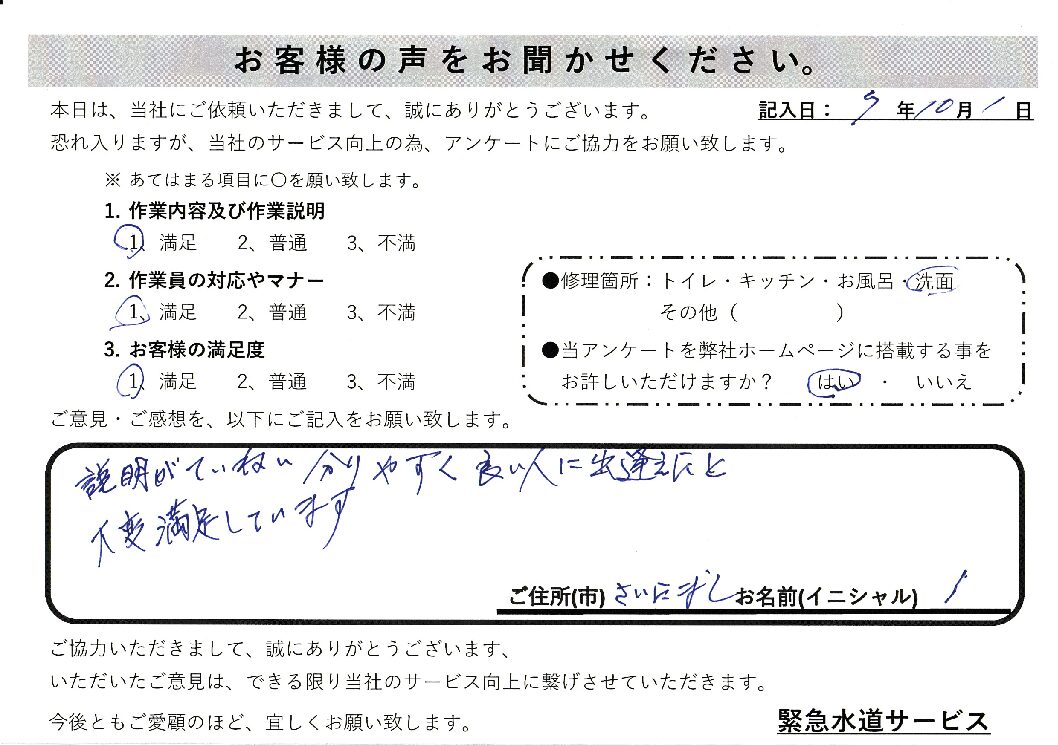 お客様の声をお聞かせください。
本日は、当社にご依頼いただきまして、誠にありがとうございます。
記入日： 年10月1日
恐れ入りますが、当社のサービス向上の為、アンケートにご協力をお願い致します。
※ あてはまる項目に〇を願い致します。
1. 作業内容及び作業説明
1、満足 2、普通 3、不満
2. 作業員の対応やマナー
1、満足 2、普通 3、不満
3. お客様の満足度
1、満足 2、普通 3、不満
●修理箇所：トイレ・キッチン・お風呂・洗面
その他（ ）
●当アンケートを弊社ホームページに搭載する事を
お許しいただけますか？ はい ・ いいえ
ご意見・ご感想を、以下にご記入をお願い致します。
説明がていねい分りやすく良い人に出逢えたと
大変満足しています
ご住所(市) さいたまし お名前(イニシャル) I
ご協力いただきまして、誠にありがとうございます、
いただいたご意見は、できる限り当社のサービス向上に繋げさせていただきます。
今後ともご愛顧のほど、宜しくお願い致します。
緊急水道サービス